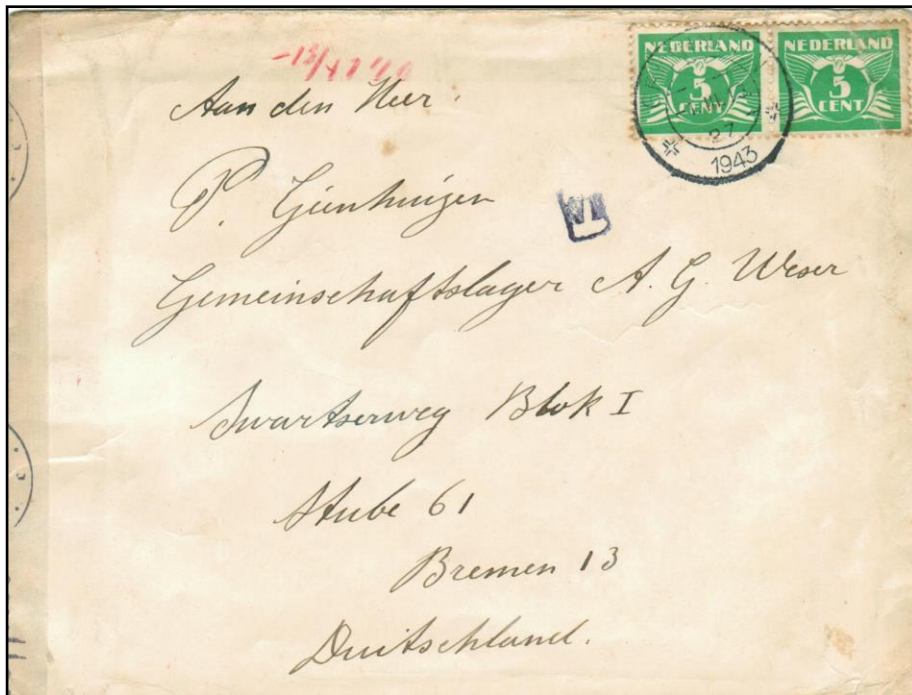 NEDERLAND NEDERLAND
5 5
CENT CENT
27
1943
Aan den Heer.
P. Geenhuizen
Gemeinschaftslager A. G. Weser
Swartserweg Blok I
Stube 61
Bremen 13
Duitschland.